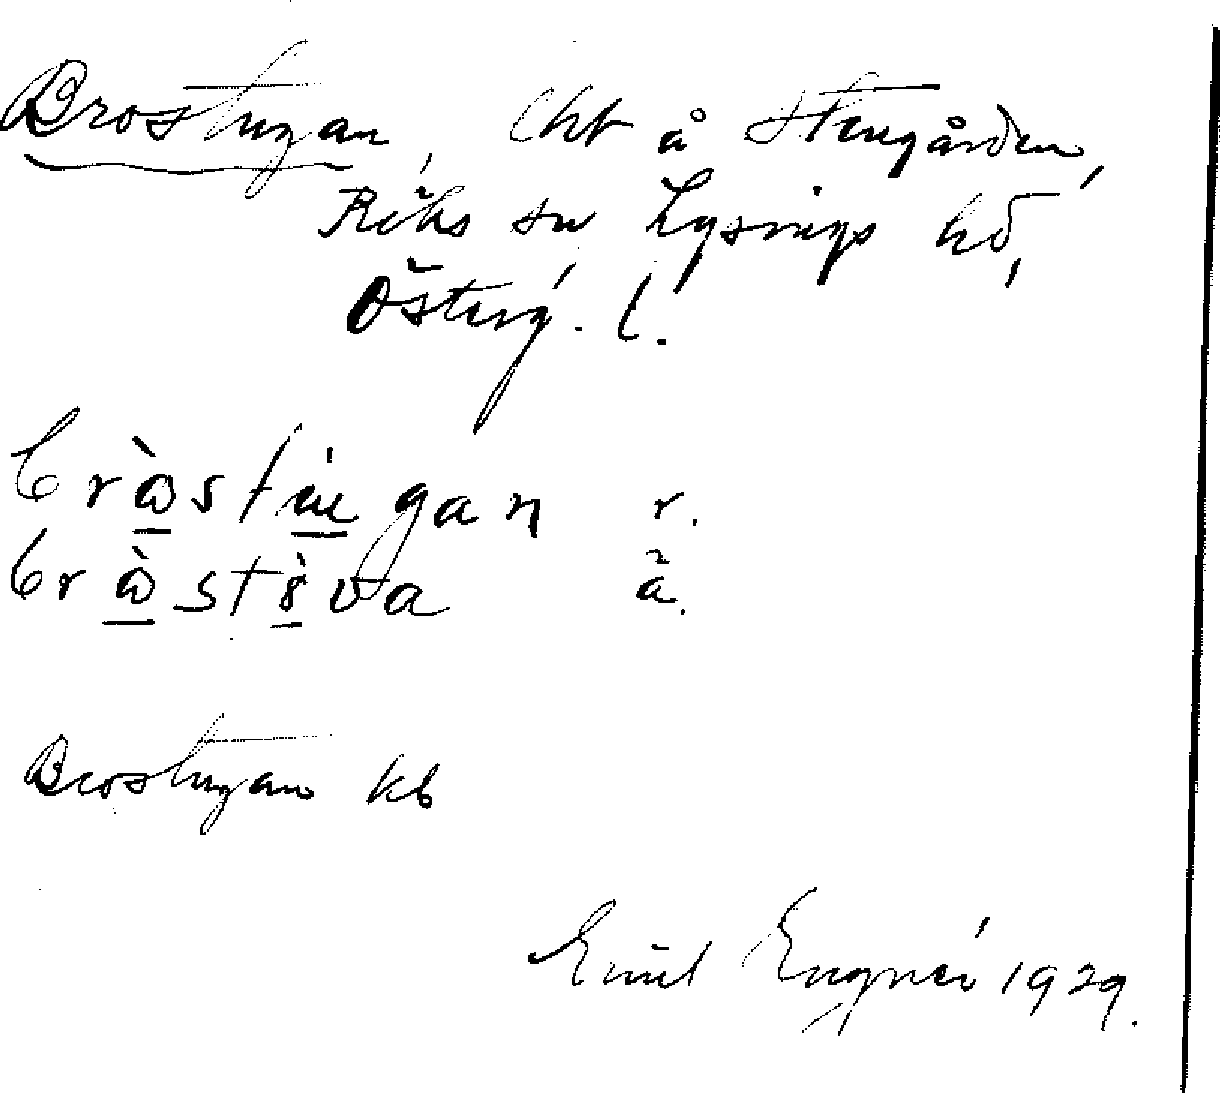 Brostugan, lht å Stengården,
Röks sn Lysings hd,
Österg. l.
bròstùgan r.
bròstö̀va ä.
Brostugan kb
Emil Engnér 1929.